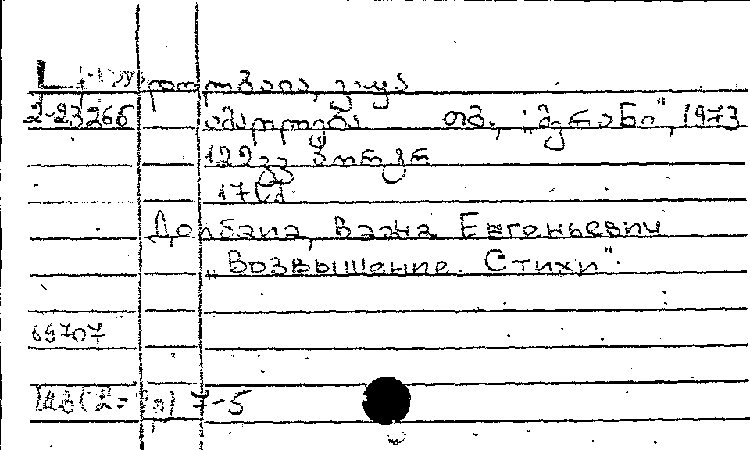 დოლბაია, ვაჟა
2-23266 ამაღლება თბ., „მერანი", 1973
122გვ პორტრ
17სმ
Долбаиа, Важа Евгеньевич
„Возвышение. Стихи".
69707
7-5